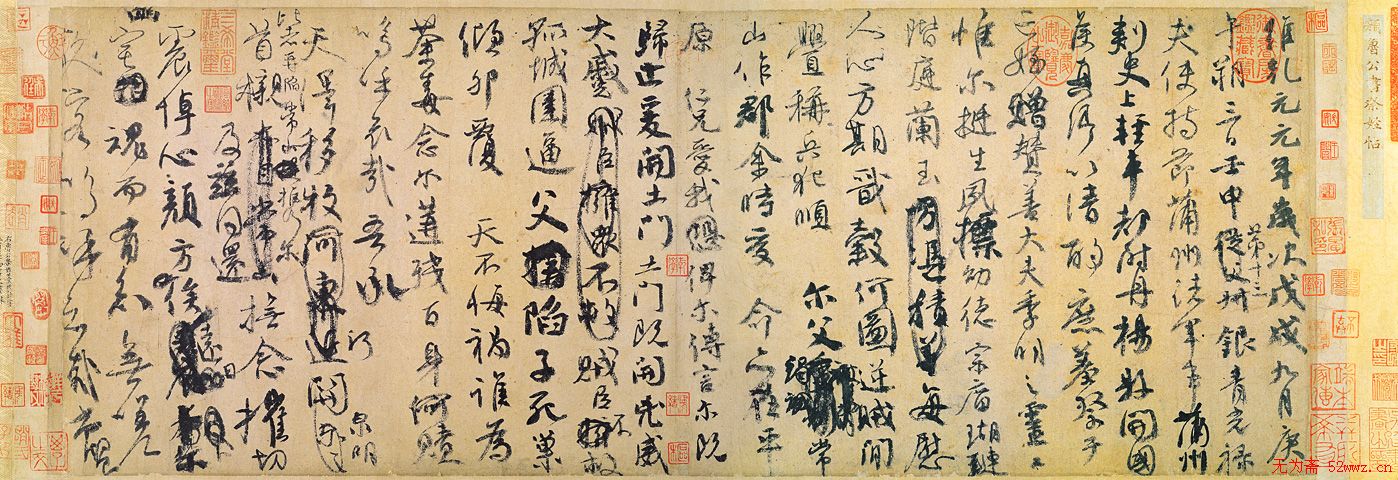 顏魯公書祭姪帖
維乾元元年歲次戊戌九月庚
午朔三日壬申第十三從父叔銀青光祿
夫使持節蒲州諸軍事蒲州
刺史上輕車都尉丹楊縣開國
侯真卿以清酌庶羞祭于
亡姪贈贊善大夫季明之靈曰
惟爾挺生夙標幼德宗廟瑚璉
階庭蘭玉方憑積善每慰
人心方期戩穀何圖逆賊閒
釁稱兵犯順爾父竭誠常
山作郡余時受命亦在平
原仁兄愛我俾爾傳言爾既
歸止爰開土門土門既開凶威
大蹙賊臣擁眾不救賊臣不救
孤城圍逼父陷子死巢
傾卵覆天不悔禍誰為
荼毒念爾遘殘百身何贖
嗚呼哀哉吾承
天澤移牧河東近河關泉明
比者再陷常山攜爾
首櫬及茲同還撫念摧切
震悼心顏方俟遠日
宅魂而有知無嗟
久客嗚呼哀哉尚饗
无为斋 52wwz.cn